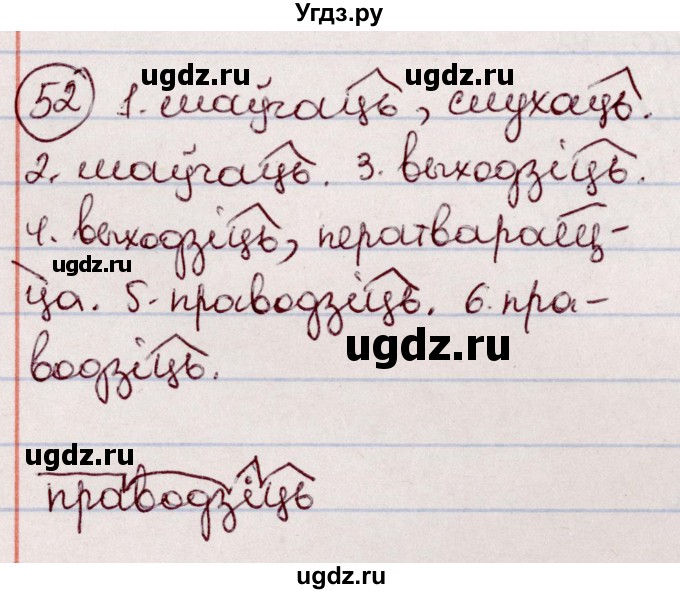 Угдз.ру
ugdz.ru ugdz.ru
52 1. маўчаць, слухаць.
2. маўчаць. 3. выходзіць.
4. выходзіць, ператварае́ц-
ugdz.ru
ца. 5. праводзіць. 6. пра-
ugdz.ru
водзіць.
ugdz.ru
праводзіць
ugdz.ru